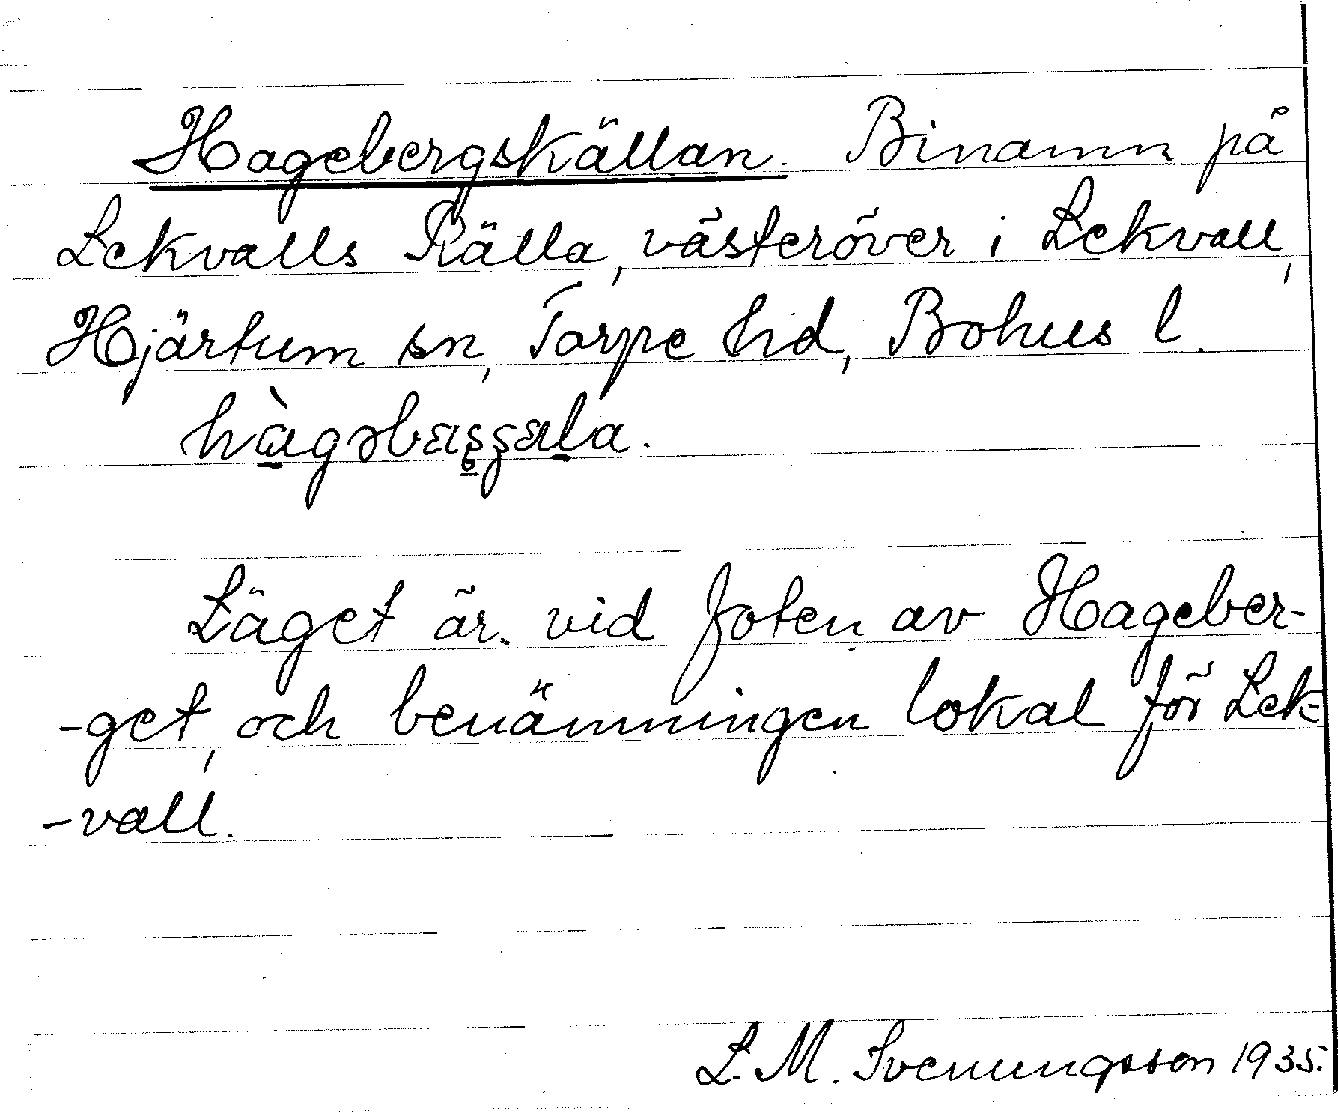 Hagebergskällan. Binamn på
Lekvalls Källa, västeröver i Lekvall,
Hjärtum sn, Torpe hd, Bohus l.
Läget är vid foten av Hageber-
-get, och benämningen lokal för Lek-
-vall.
L. M. Svenungsson 1935.